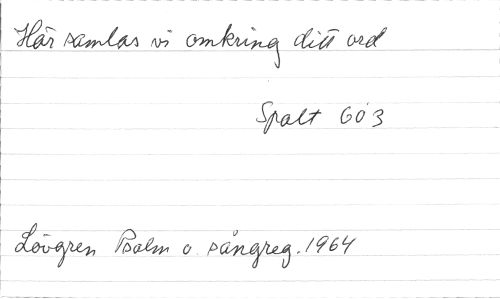 Här samlas vi omkring ditt ord
Spalt 603
Lövgren Psalm o. sångreg. 1964